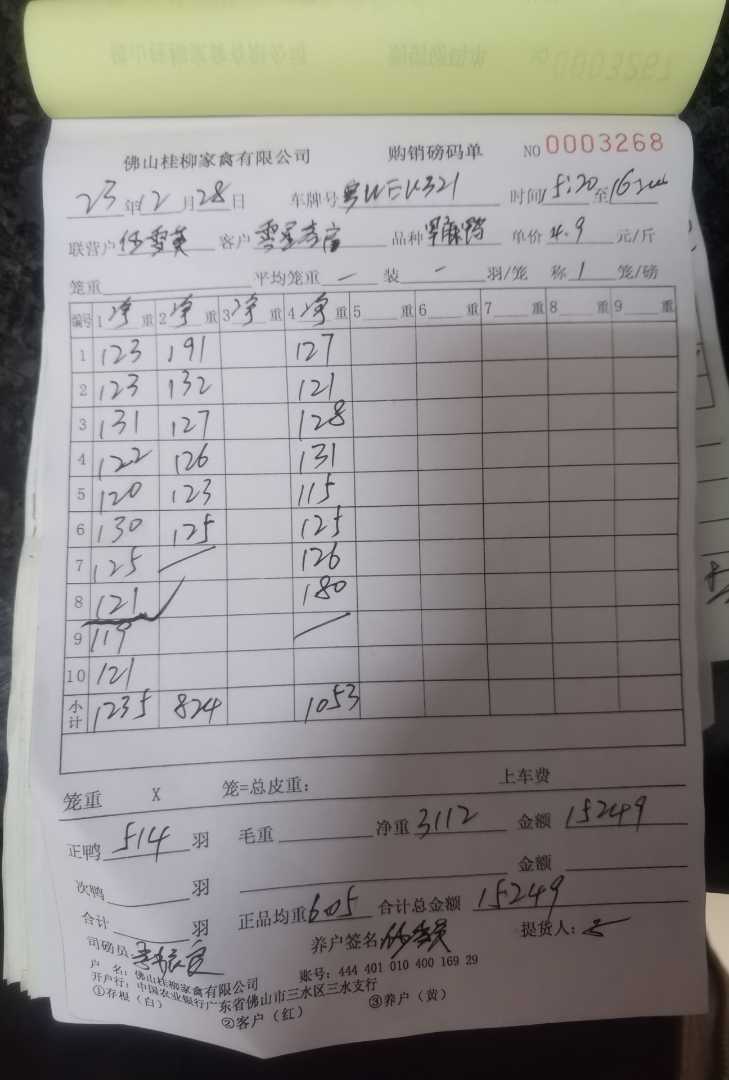 佛山桂柳家禽有限公司 购销磅码单 NO 0003268
23年12月28日 车牌号 时间15:20至16
联营户 客户 品种 单价4.9元/斤
笼重 平均笼重 — 装 — 羽/笼 称1笼/磅
编号 1净重 2净重 3净重 4净重 5 重 6 重 7 重 8 重 9 重
1 123 191 127
2 123 132 121
3 131 127 128
4 122 126 131
5 120 123 115
6 130 125 125
7 125 126
8 121 180
9 119
10 121
小计 1235 824 1053
笼重 X 笼=总皮重: 上车费
正鸭514羽 毛重 净重3112 金额15249
次鸭 羽 金额
合计 羽 正品均重6.05 合计总金额15249
司磅员 养户签名 提货人:
户 名: 佛山桂柳家禽有限公司 账号: 444 401 010 400 169 29
开户行: 中国农业银行广东省佛山市三水区三水支行
①存根(白) ②客户(红) ③养户(黄)